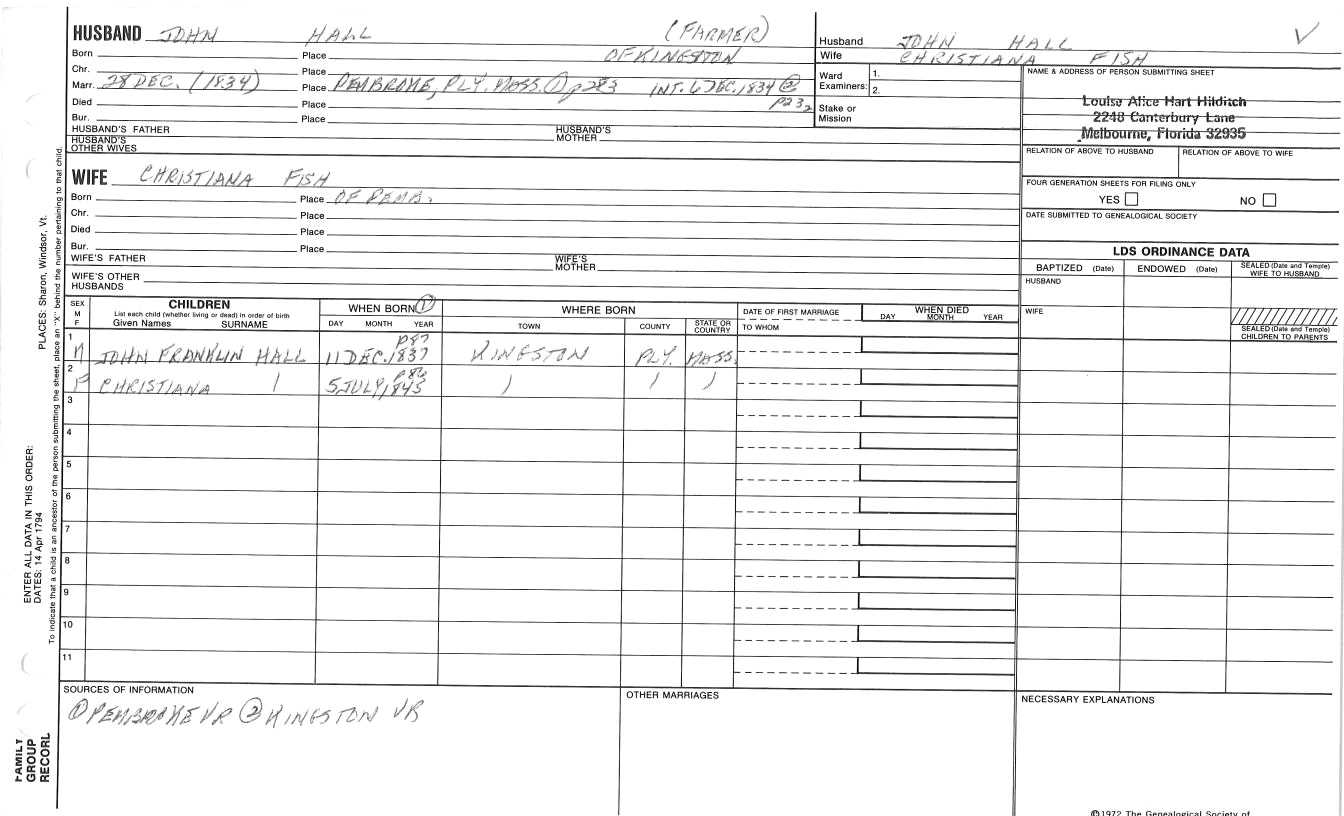 HUSBAND JOHN HALL (FARMER)
Born Place OF KINGSTON
Chr. Place
Marr. 28 DEC. (1834) Place PEMBROKE, PLY. MASS. ① p283 INT. 6 DEC. 1834 ② p232
Died Place
Bur. Place
HUSBAND'S FATHER HUSBAND'S MOTHER
HUSBAND'S OTHER WIVES
WIFE CHRISTIANA FISH
Born Place OF PEMB.
Chr. Place
Died Place
Bur. Place
WIFE'S FATHER WIFE'S MOTHER
WIFE'S OTHER HUSBANDS
Husband JOHN HALL
Wife CHRISTIANA FISH
Ward Examiners: 1.
2.
Stake or Mission
NAME & ADDRESS OF PERSON SUBMITTING SHEET
Louise Alice Hart Hilditch
2248 Canterbury Lane
Melbourne, Florida 32935
RELATION OF ABOVE TO HUSBAND RELATION OF ABOVE TO WIFE
FOUR GENERATION SHEETS FOR FILING ONLY
YES NO
DATE SUBMITTED TO GENEALOGICAL SOCIETY
LDS ORDINANCE DATA
BAPTIZED (Date) ENDOWED (Date) SEALED (Date and Temple) WIFE TO HUSBAND
HUSBAND
WIFE
SEALED (Date and Temple) CHILDREN TO PARENTS
SEX M F
CHILDREN
List each child (whether living or dead) in order of birth
Given Names SURNAME
WHEN BORN ①
DAY MONTH YEAR
WHERE BORN
TOWN COUNTY STATE OR COUNTRY
DATE OF FIRST MARRIAGE
TO WHOM
WHEN DIED
DAY MONTH YEAR
1 M JOHN FRANKLIN HALL 11 DEC. 1837 p87 KINGSTON PLY. MASS.
2 F CHRISTIANA 5 JULY, 1845 p86
3
4
5
6
7
8
9
10
11
SOURCES OF INFORMATION
① PEMBROKE VR ② KINGSTON VR
OTHER MARRIAGES
NECESSARY EXPLANATIONS
©1972 The Genealogical Society of
PLACES: Sharon, Windsor, Vt.
ENTER ALL DATA IN THIS ORDER:
DATES: 14 Apr 1794
To indicate that a child is an ancestor of the person submitting the sheet, place an "X" behind the number pertaining to that child.
FAMILY
GROUP
RECORD